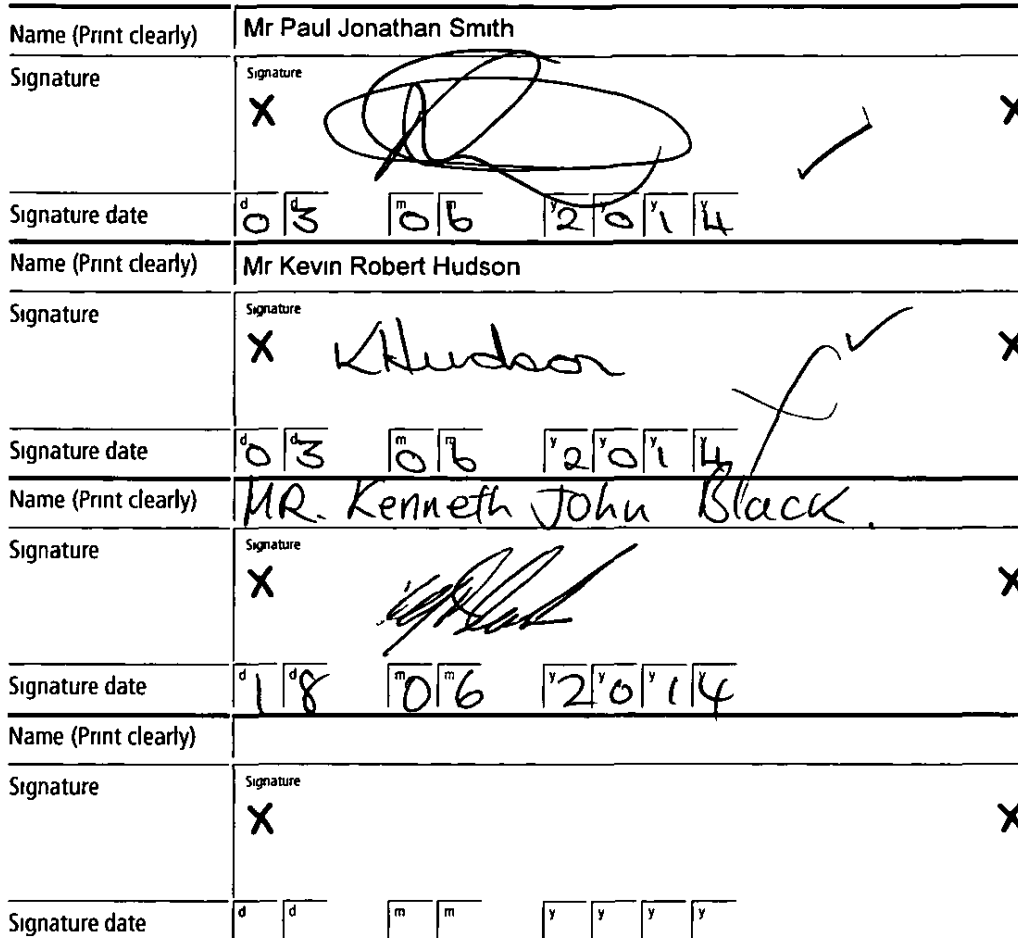 Name (Print clearly) Mr Paul Jonathan Smith
Signature Signature
X X
Signature date d 0 d 3 m 0 m 6 y 2 y 0 y 1 y 4
Name (Print clearly) Mr Kevin Robert Hudson
Signature Signature
X KHudson X
Signature date d 0 d 3 m 0 m 6 y 2 y 0 y 1 y 4
Name (Print clearly) MR. Kenneth John Black.
Signature Signature
X X
Signature date d 1 d 8 m 0 m 6 y 2 y 0 y 1 y 4
Name (Print clearly)
Signature Signature
X X
Signature date d d m m y y y y